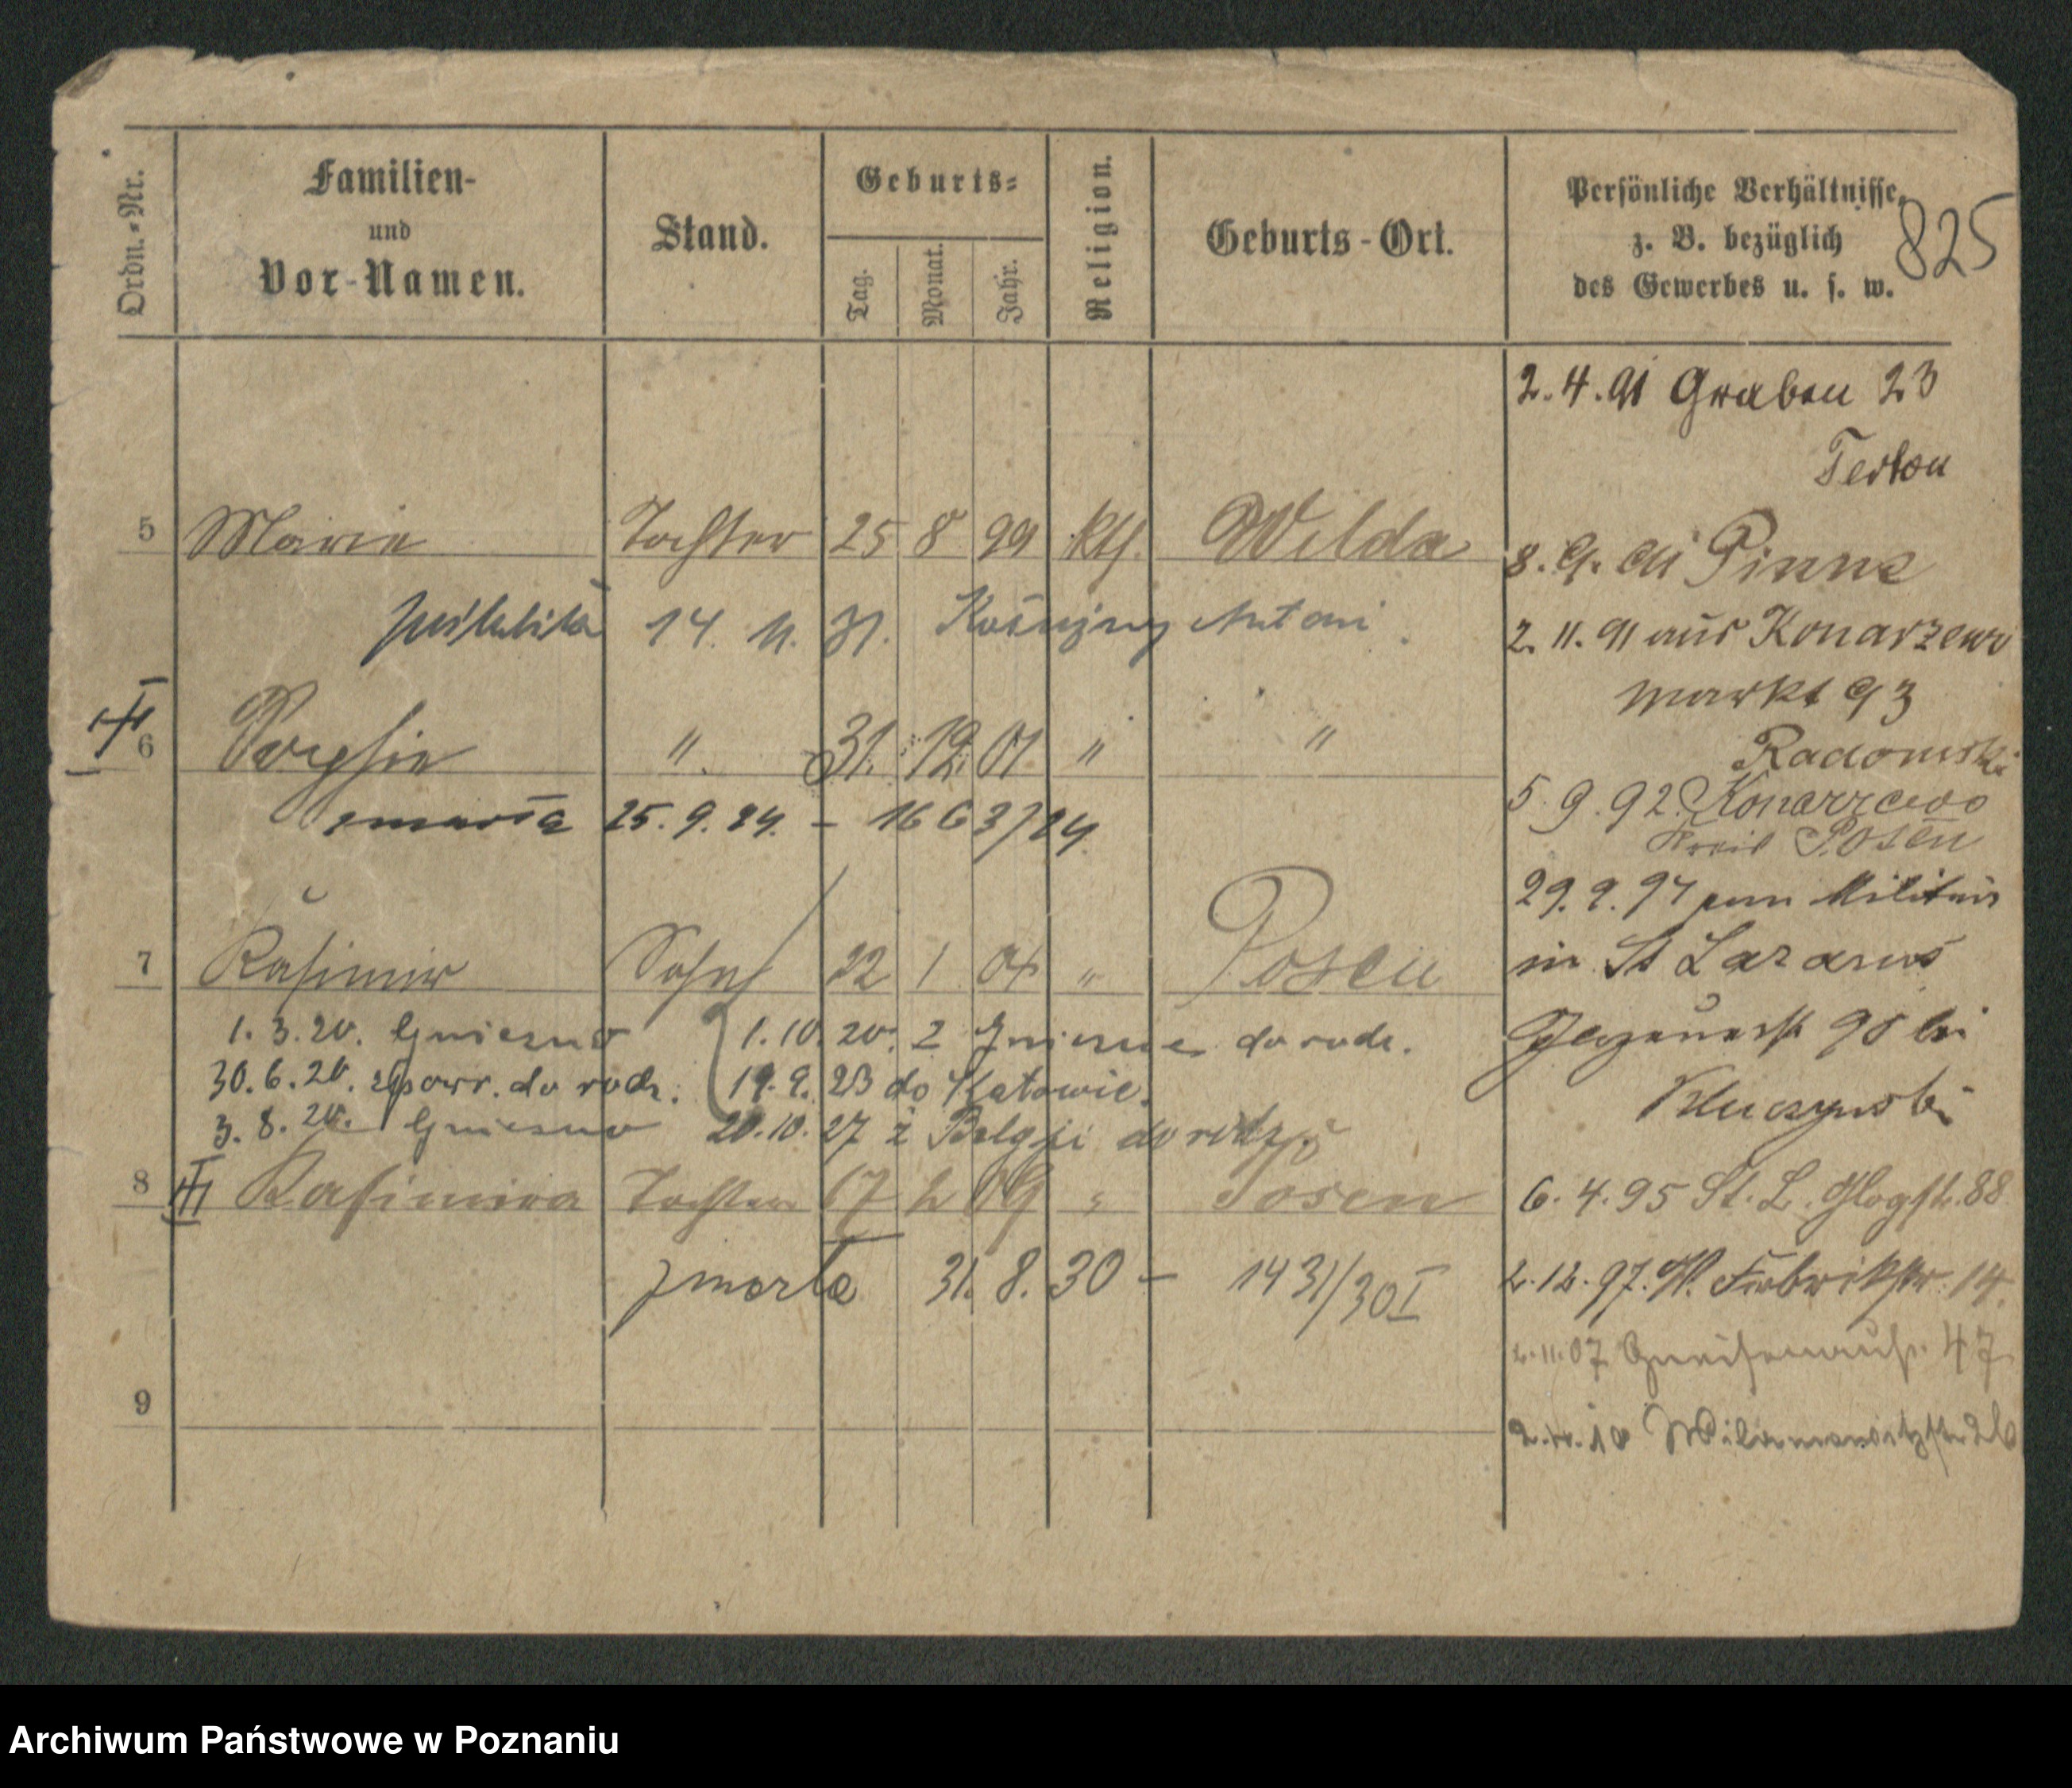 Ordn.-Nr.
Familien-
und
Vor-Namen.
Stand.
Geburts-
Tag.
Monat.
Jahr.
Religion.
Geburts-Ort.
Persönliche Verhältnisse,
z. B. bezüglich
des Gewerbes u. s. w.
825
2.4.91 Graben 23
5 Marie Tochter 25 8 99 kth. Wilda
8.9.91 Pinne
poślubiła 14. 11. 31. Antoni
2.11.91 aus Konarzewo
Markt 93
Radomski
6 " 31. 12. 01 " "
5.9.92 Konarzewo
Kreis Posen
zmarła 25.9.24. – 1663/24
29.9.94 zum Militär
7 Kasimir Sohn 22 1 04 " Posen
in St Lazarus
1.3.20. Gniezno 1.10.20. z Gniezna do rodz.
90 bei
30.6.20. spowr. do rodz. 19.9.23 do Katowic.
3.8.20. Gniezno 20.10.27 z Belgji do rodz.
8 Kasimira Tochter 17 2 09 " Posen
6.4.95 St. L. Glogstr. 88
zmarła 31.8.30 – 1431/30 I
2.12.97. W. Fabrikstr. 14.
2.11.07 Gneisenaustr. 47
9